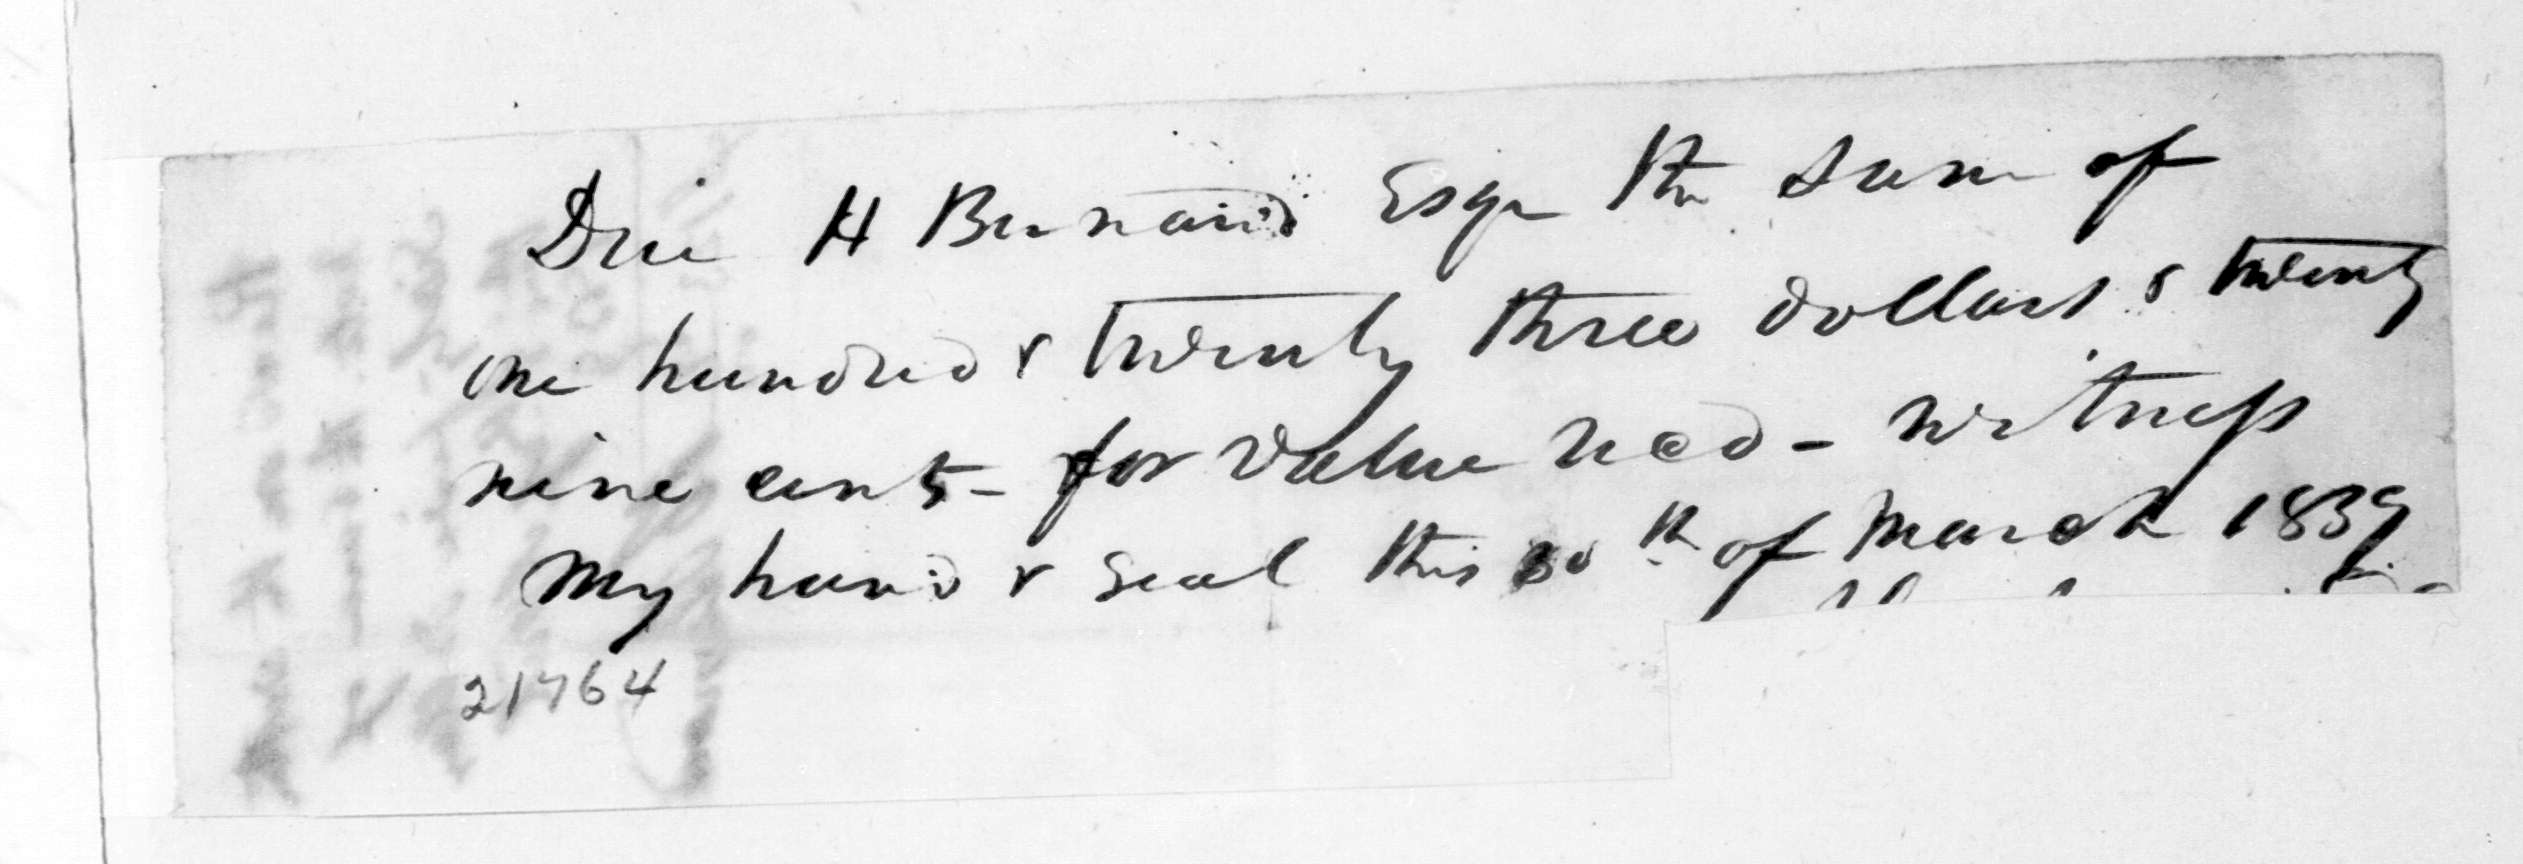 Due H Bernard Esqr the Sum of
one hundred & twenty three dollars & twenty
nine cents - for value recd - witness
my hand & seal this 30th of March 1839
21764